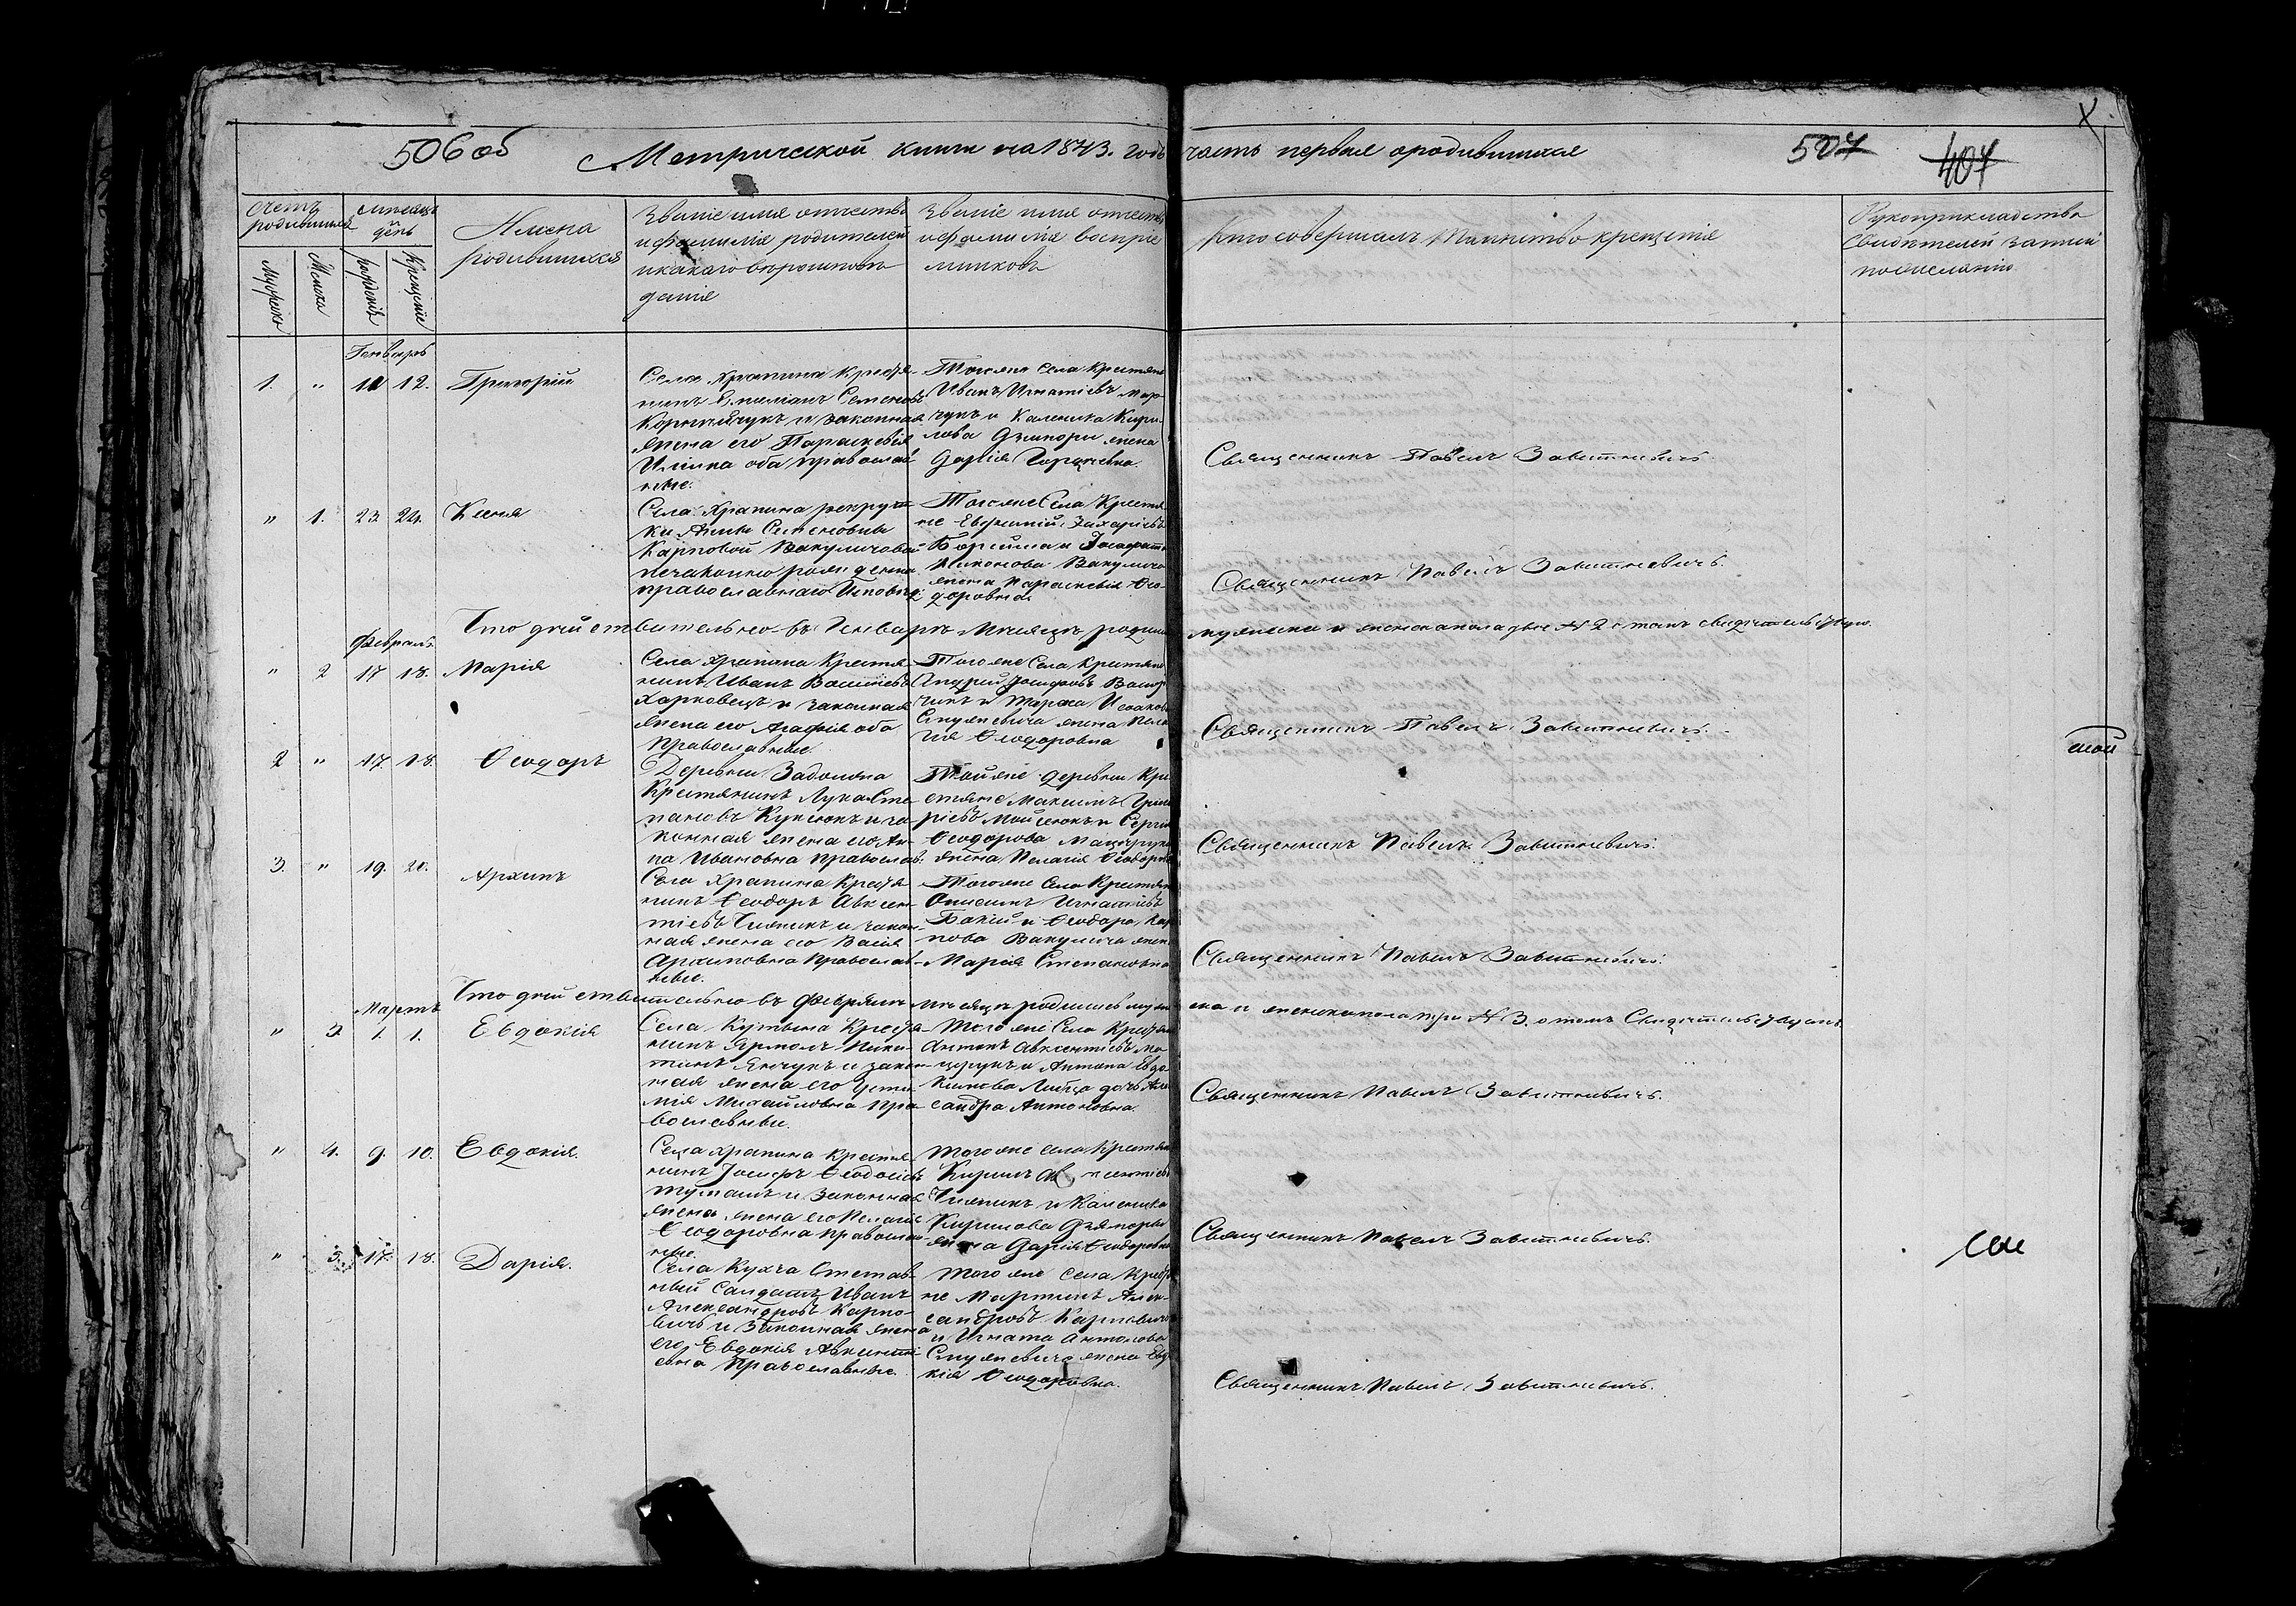 506 об Метрической книги на 1873. годъ часть первая о родившихся 507 407
Счетъ родившихся
Мужеска
Женска
Месяцъ день
рожденія
Крещеніе
Имена
родившихся
Званіе имя отчество
и фамилія родителей
и какого вероисповѣ
данія
Званіе имя отчество
и фамилія воспріе
мниковъ
Кто совершалъ таинство крещенія
Рукоприкладство
свидѣтелей записи
по желанію
Генварь
1. " 11 12. Григорій
Села Храпина Крестья-
нинъ Емеліанъ Семеновъ
Корнейчукъ и законная
жена его Параскевія
Ильина оба православ
ные.
Тогоже Села Крестяне
Иванъ Игнатіевъ Мар-
чукъ и Каленика Кири-
лова жена
Дарія
Священникъ Павелъ Завитневичъ.
" 1. 23 24. Ксенія
Села Храпина рекрутт
ки Анны Семеновны
Карповой Вакуличовой
незаконно рожденна
православнаго Исповѣд.
Тогоже Села Крестя
не Евфимій Захаріевъ
Борейша и Іосафата
Никонова Вакулича
жена Параскевія Ѳео-
доровна.
Священникъ Павелъ Завитневичъ.
Что дѣйствительно въ Генварѣ Месяцѣ родилось
мужеска и женска пола двое № 2 о томъ свидѣтельствую.
Февраль.
" 2 17 18. Марія
Села Храпина Крестья-
нинъ Иванъ Василіевъ
Харковецъ и законная
жена его Агафія оба
православные.
Тогоже Села Крестяне
Андрей Іосифовъ
и Марка Исаакова
жена Пела
гія Ѳеодоровна
Священникъ Павелъ Завитневичъ.
2 " 17. 18. Ѳеодоръ
Деревни Задолжа
Крестянинъ Лука Сте-
пановъ и за-
конная жена его Ан-
на Ивановна православ.
Тойже деревни Кре
стяне Максимъ Григо
ріевъ Мойсеюкъ и Сергія
Ѳеодорова
жена Пелагія Ѳеодоров
Священникъ Павелъ Завитневичъ.
3. " 19. 20. Архипъ
Села Храпина Крестья
нинъ Ѳеодоръ Авксен-
тіевъ и закон-
ная жена его Васса
Архиповна православ-
ные.
Тогоже Села Крестян
Онисимъ Игнатіевъ
и Ѳеодора Кар
пова Вакулича жен
Марія Степановна
Священникъ Павелъ Завитневичъ.
Что дѣйствительно въ Февралѣ месяцѣ родилось муже
ска и женска пола три № 3. о томъ Свидѣтельствую.
Мартъ
" 3 1. 1. Евдокія
Села Крестья-
нинъ Ярмолъ Ники-
тинъ Янчукъ и закон-
ная жена его Усти-
нія Михайловна пра-
вославные.
Тогоже Села Крестян
Антонъ Авксентіевъ Ма-
цярукъ и Антона Евдо
кимова дочь Алек
сандра Антоновна.
Священникъ Павелъ Завитневичъ.
" 4. 9. 10. Евдокія.
Села Храпина Крестья-
нинъ Іосифъ Ѳеодосіевъ
и Законная
жена жена его Пелагія
Ѳеодоровна православ-
ные.
Тогоже села Крестьяне
Кирилъ Авксентіевъ
и Каленика
Кирилова
жена Дарія Ѳеодоровна
Священникъ Павелъ Завитневичъ.
" 5. 17. 18. Дарія.
Села Кухча Отстав-
ный Солдатъ Иванъ
Александровъ Карпо-
вичъ и Законная жена
его Евдокія Авксенті-
евна православные.
Тогоже Села Крестя
не Мартинъ Алек-
сандровъ Карповичъ
и Игната Антонова
жена Евдо
кія Ѳеодоровна.
Священникъ Павелъ Завитневичъ.